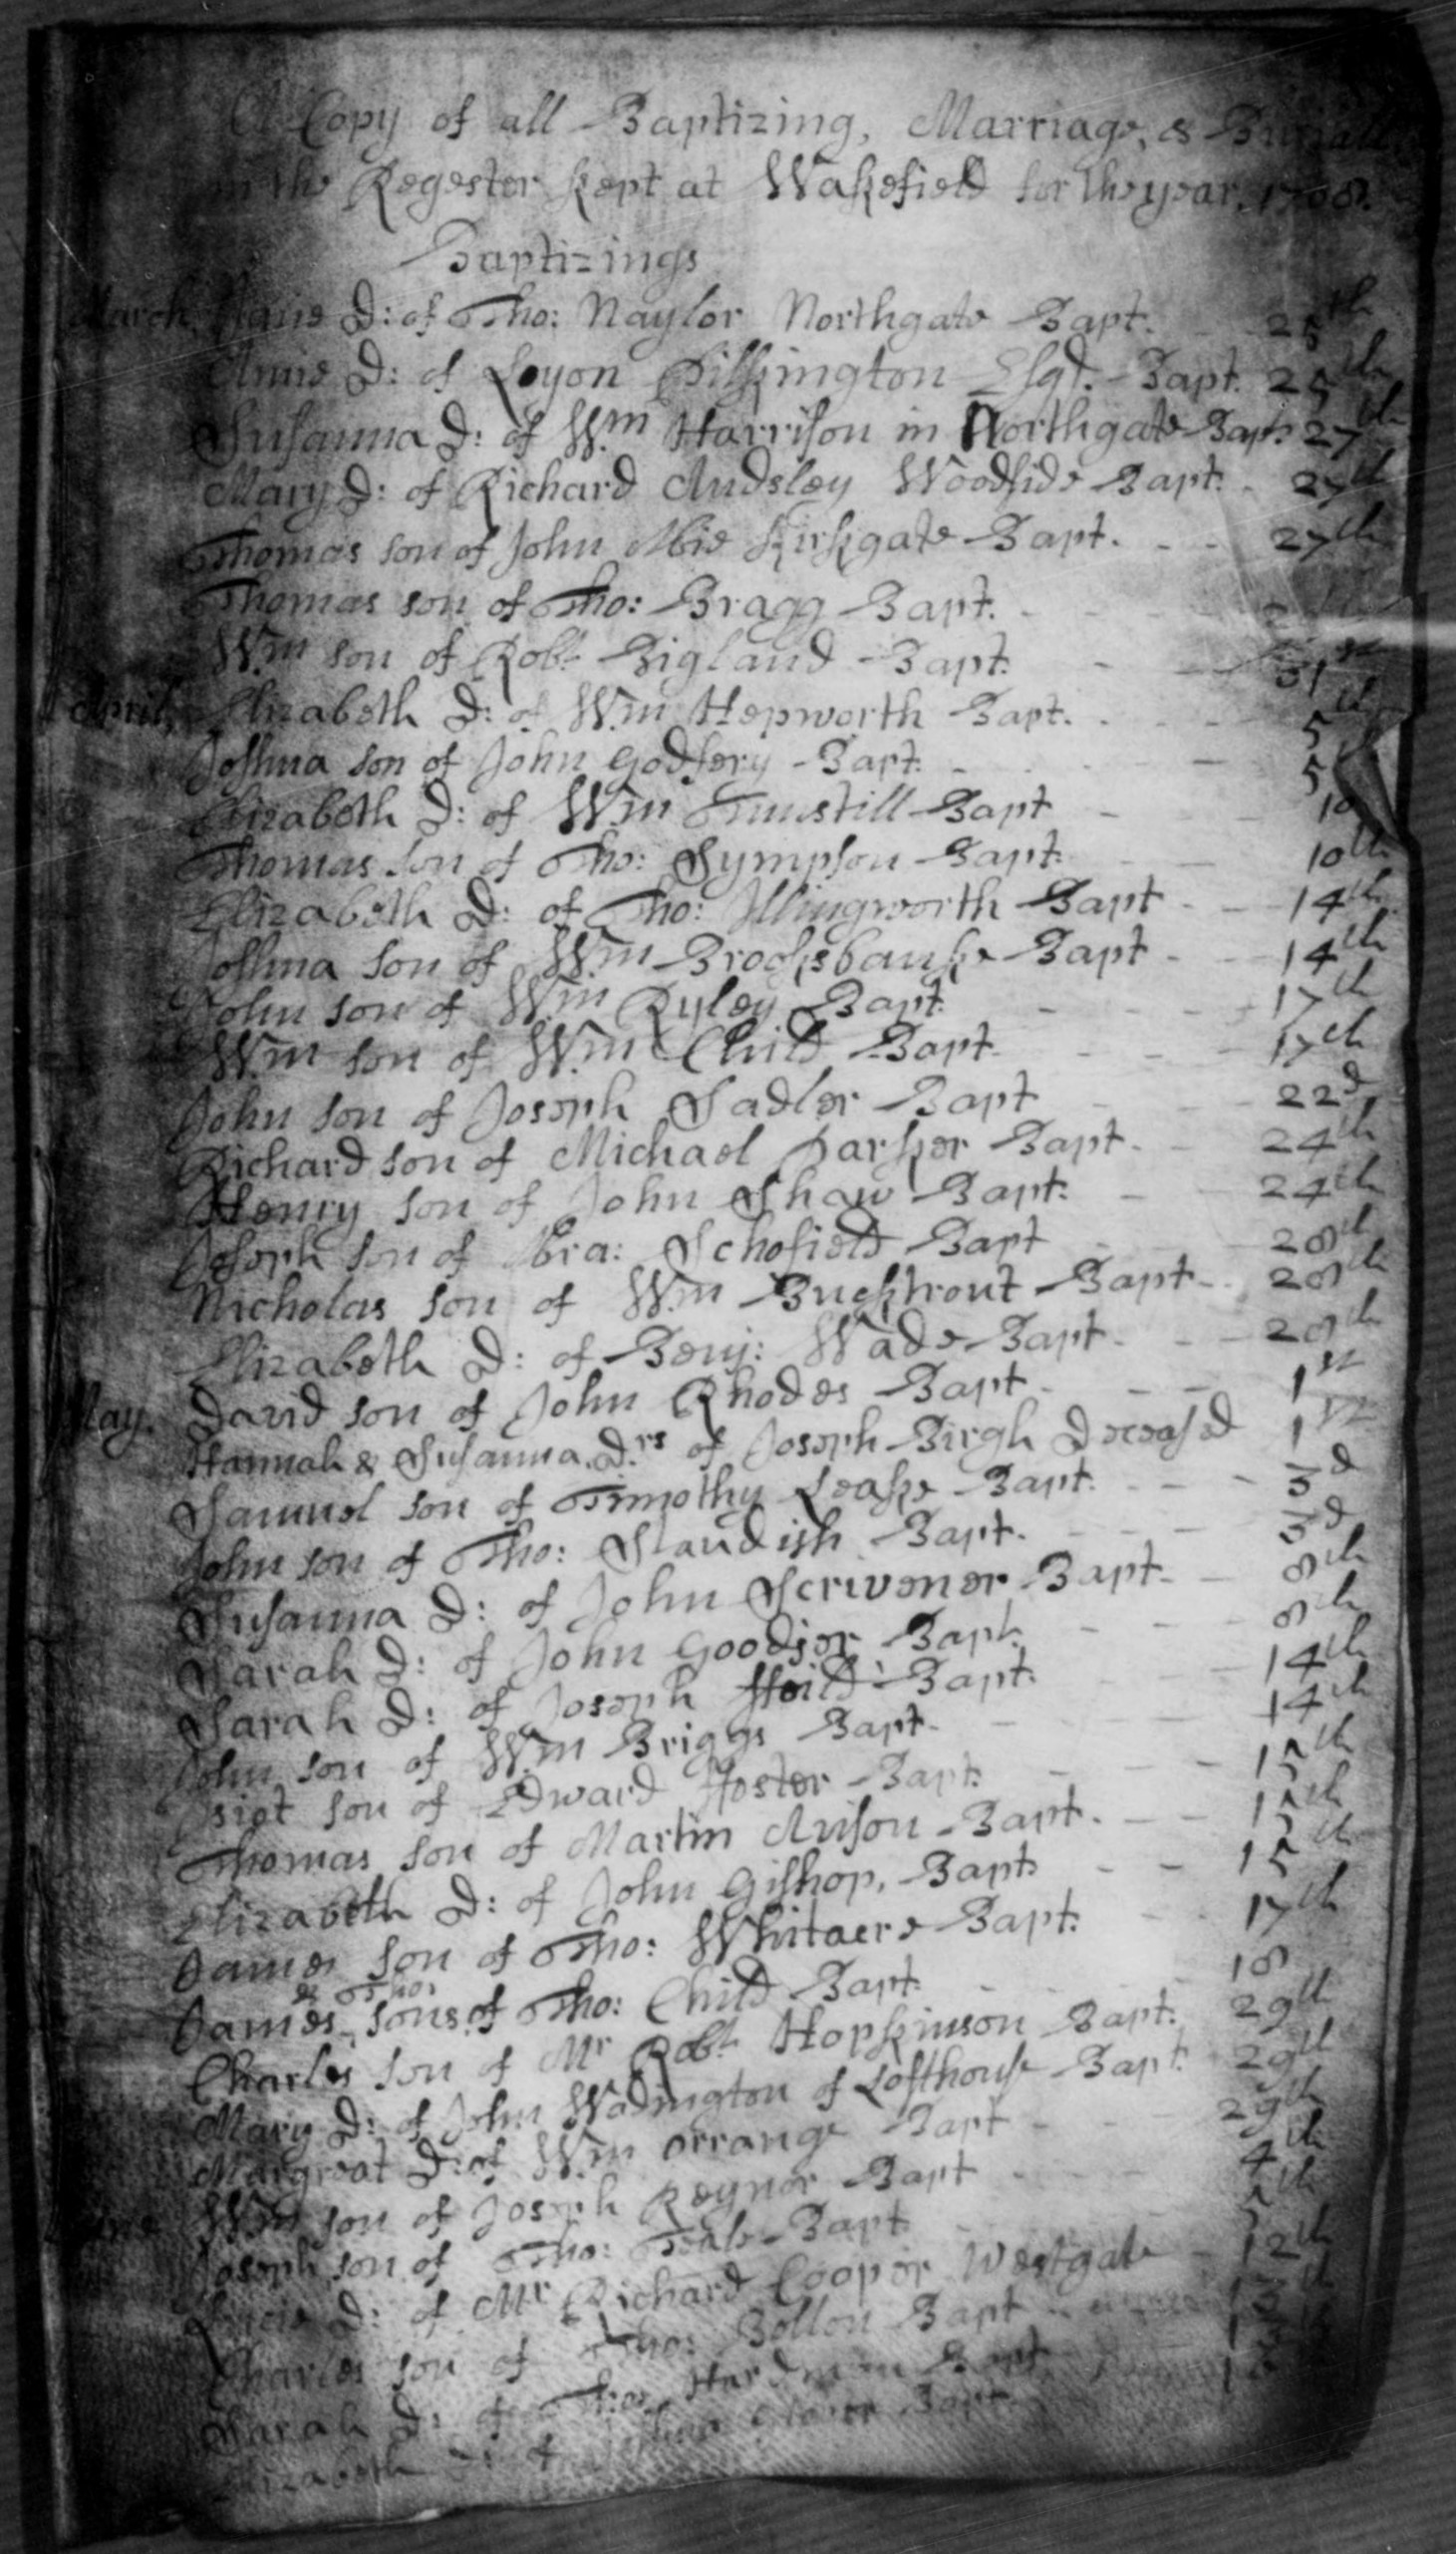 A Copy of all Baptizing, Marriage, & Buriall
in the Regester kept at Wakefield for the year, 1708.
Baptizings
March, D: of Tho: Naylor Northgate Bapt. 25th
Annie D: of Loyon Pilkington Esqr. Bapt. 25th
Susanna D: of Wm Harrison in Northgate Bapt: 27th
Mary D: of Richard Audsley Woodside Bapt. 27th
Thomas son of John Kirkgate Bapt. 27th
Thomas son of Tho: Bragg Bapt.
Wm son of Robt Bigland Bapt. 31st
April, Elizabeth D: of Wm Hepworth Bapt. 5th
Joshua son of John Godfery Bapt. 5
Elizabeth D: of Wm Tunstill Bapt 10
Thomas son of Tho: Sympson Bapt. 10th
Elizabeth D: of Tho: Illingworth Bapt 14th
Joshua son of Wm Brooksbanke Bapt 14th
John son of Wm Ryley Bapt. 17th
Wm son of Wm Child Bapt. 17th
John son of Joseph Sadler Bapt 22d
Richard son of Michael Parker Bapt. 24th
Henry son of John Shaw Bapt. 24th
Joseph son of Abra: Schofield Bapt 28th
Nicholas son of Wm Bucktrout Bapt 28th
Elizabeth D: of Benj: Wade Bapt. 28th
May. David son of John Rhodes Bapt 1st
Hannah & Susanna, Drs of Joseph Birgh Deceased 1st
Samuel son of Timothy Leake Bapt. 3d
John son of Tho: Standish Bapt. 3d
Susanna D: of John Scrivener Bapt. 8th
Sarah D: of John Goodier Bapt. 8th
Sarah D: of Joseph Heild Bapt. 14th
John son of Wm Briggs Bapt. 14th
son of Edward Foster Bapt. 15th
Thomas son of Martin Anison Bapt. 15th
Elizabeth D: of John Gishop, Bapt: 15th
James son of Tho: Whitacre Bapt. 17th
& Tho:
James sons of Tho: Child Bapt. 18
Charles son of Mr Robt Hopkinson Bapt. 29th
Mary D: of John Wadington of Lofthouse Bapt. 29th
Margreat D: of Wm Orrange Bapt 29th
June Wm son of Joseph Reynor Bapt 4th
Joseph son of Tho: Teale Bapt 5th
D: of Mr Richard Cooper Westgate 12th
Charles son of Tho: Bollon Bapt 13
Sarah D: of Tho: Hardman Bapt 13
Elizabeth D: of Bapt